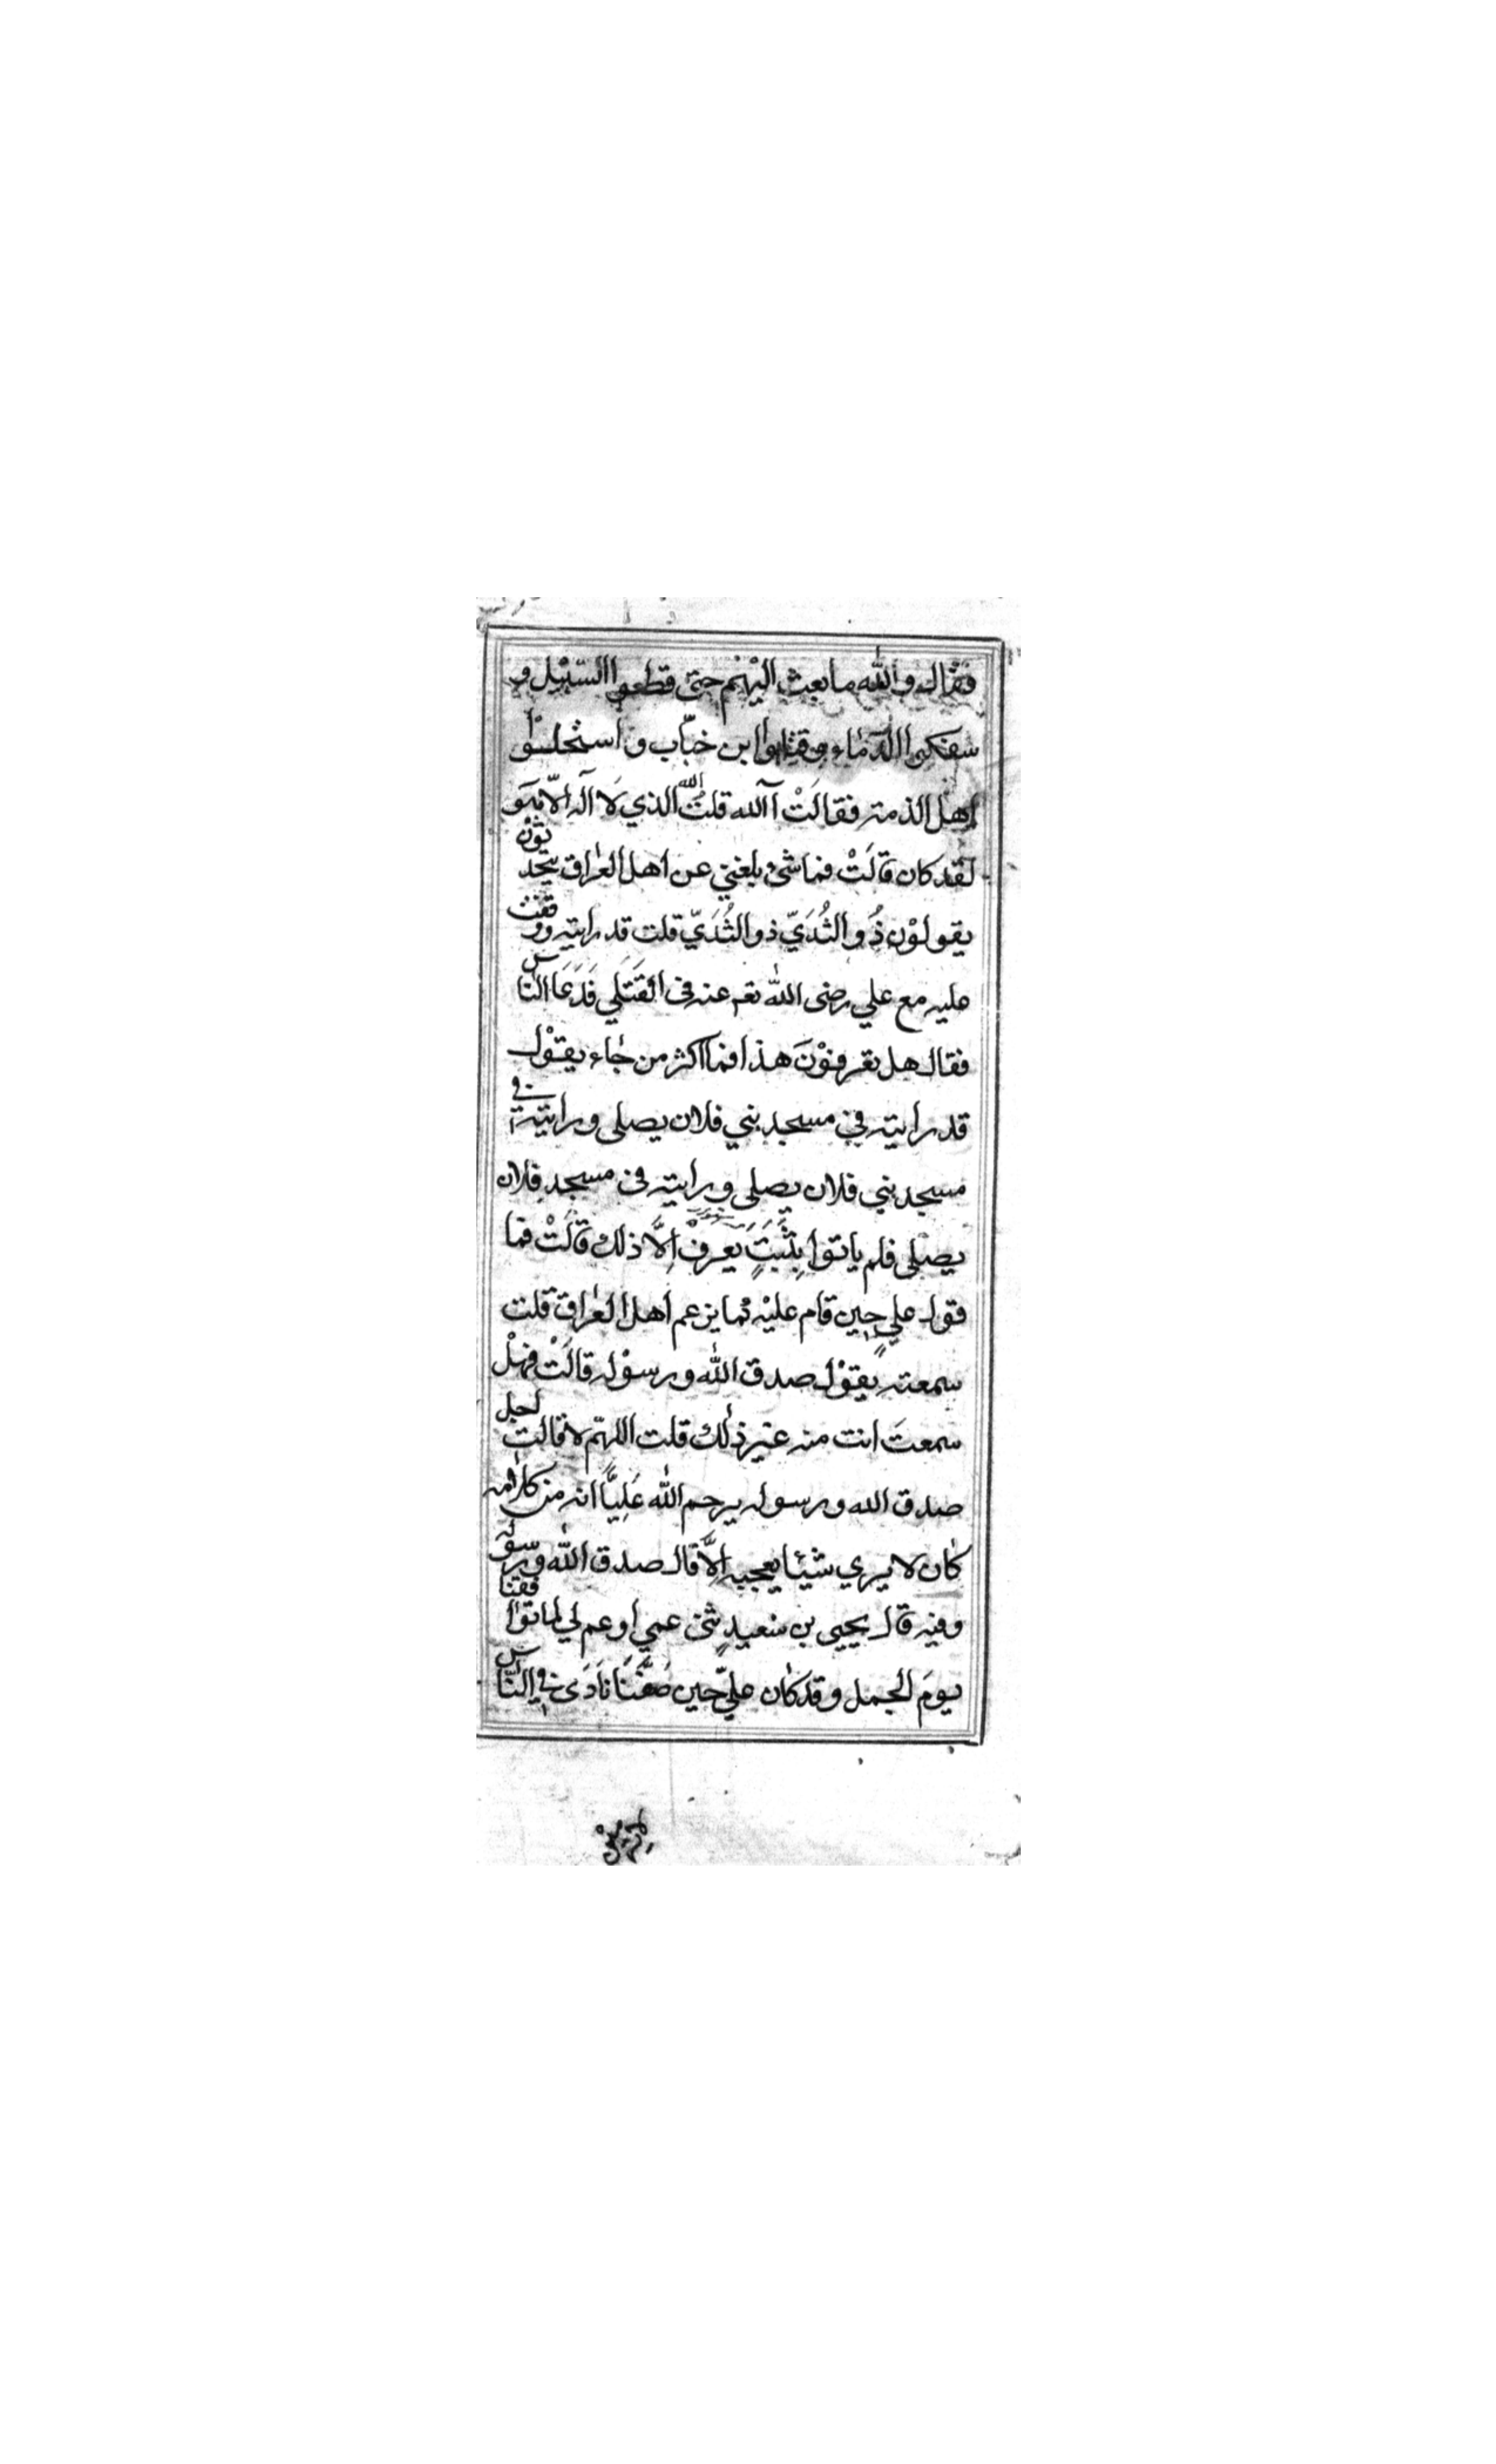 فقال والله ما بعث اليْهم حتى قطعوا السّبيْل و
سفكوا الدّماء وقتلوا ابن خبّاب واستحلوْا
اهل الذمة فقالَتْ آالله قلتُ الله الذي لَا آله الّا هو
لقد كان قالَتْ فما شئ بلغني عن اهل العراق يتحدثون
يقولوْن ذُو الثُديّ ذو الثُديّ قلت قد رايته ووقفت
عليه مع علي رضى الله تعم عنه فى القَتَلي فَدَعَا الناس
فقال هل تعرفوْنَ هذا فما اكثر من جاء يقوْل
قد رايته في مسجد بني فلان يصلى ورايته في
مسجد بني فلان يصلى ورايته في مسجد فلان
يصلى فلم ياتوا بِثَبَتٍ يعرفْ اِلَّا ذلك قالَتْ فما
قول علي حين قام عليْه كما يزعم اهل العراق قلت
سمعته يقوْل صدق الله ورسوْله قالَتْ فهلْ
سمعتَ انت منه غير ذلك قلت اللهمّ لا قالت اجل
صدق الله ورسوله يرحم الله عَلِيًّا انه من كلامه
كان لا يري شيئا يعجبه اِلَّا قال صدق الله ورسوله
وفيه قال يحيى بن سعيدٍ ثنى عمي او عم لي لما تواقفنا
يومَ الجمل وقد كان عليّ حين صَفَّنَا نَادَى في النّاس